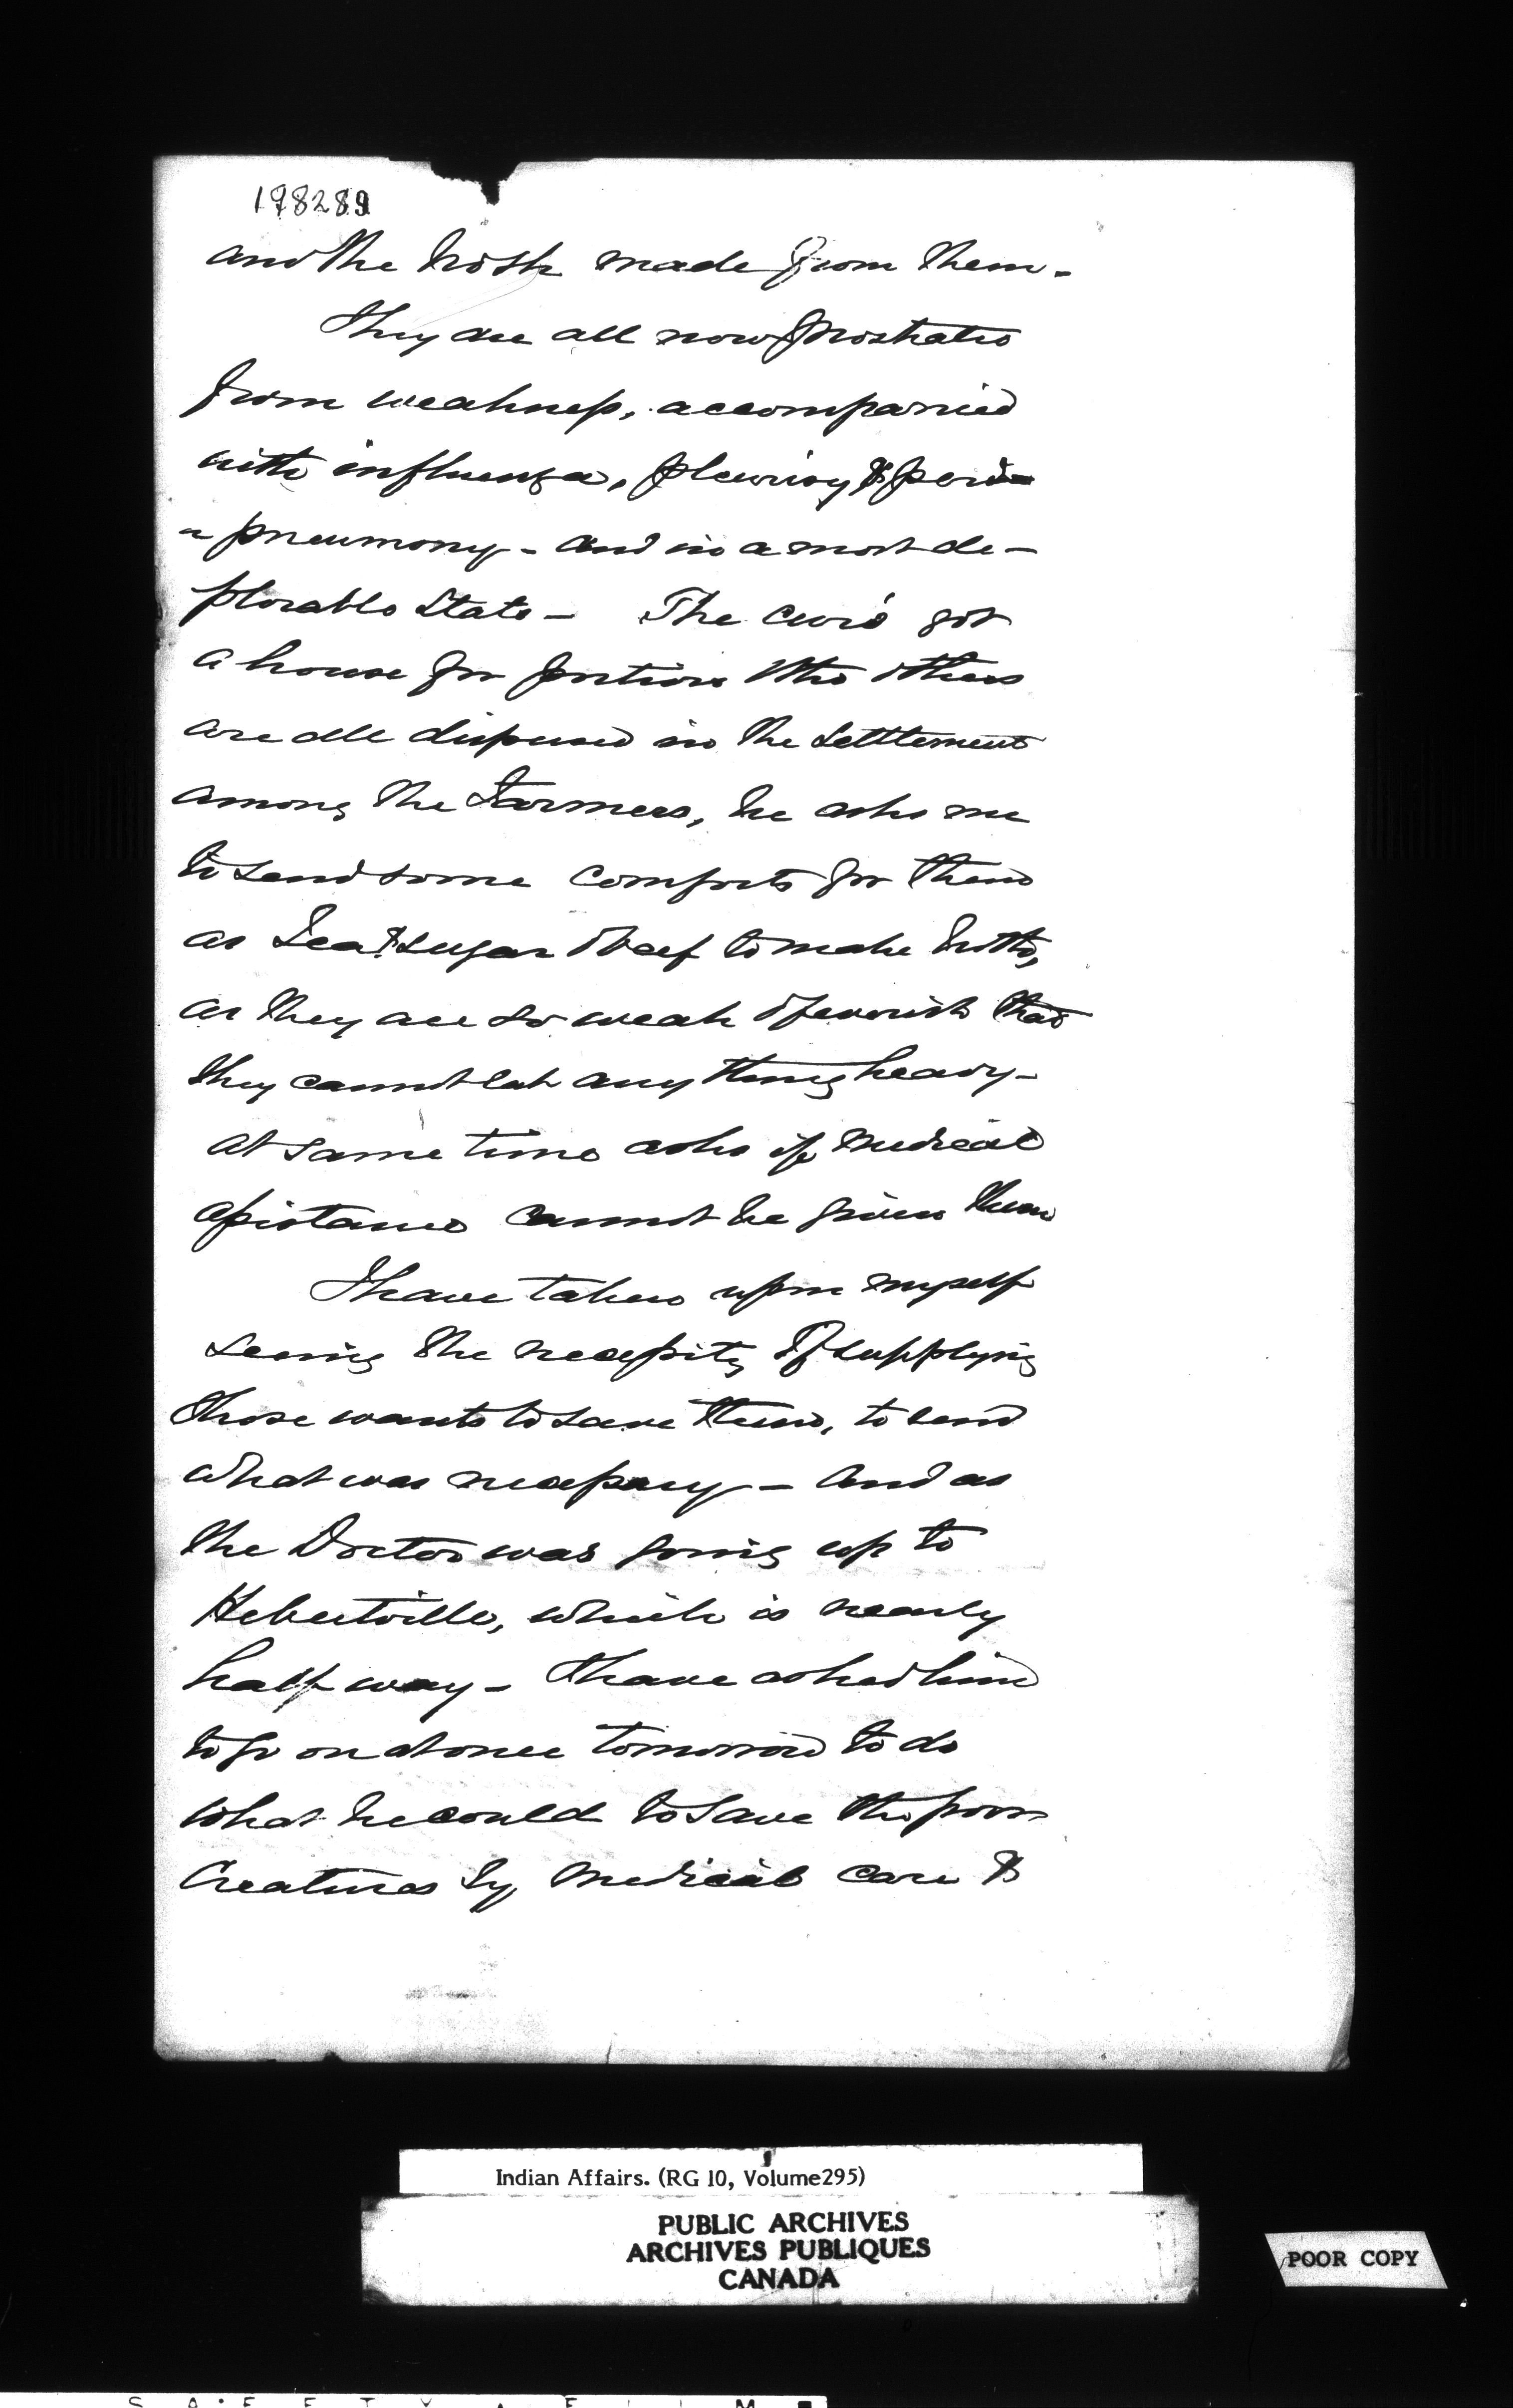 198289
and the broth made from them -
They are all now prostrate
from weakness, accompanied
with influenza, pleurisy & peri-
- pneumony - and in a most de-
plorable State - The curé got
a house for portion & the others
are all dispersed in the Settlement
among the Farmers, he asks me
to send some comforts for them
as Tea & Sugar & beef to make broth,
as they are so weak & feverish that
they cannot eat any thing heavy -
at same time asks if medical
assistance cannot be given them
I have taken upon myself
seeing the necessity of supplying
those wants to save them, to send
what was necessary - And as
the Doctor was going up to
Hebertville, which is nearly
half way - I have asked him
to go on at once tomorrow to do
what he could to save the poor
Creatures by medical care &
Indian Affairs. (RG 10, Volume 295)
PUBLIC ARCHIVES
ARCHIVES PUBLIQUES
CANADA
POOR COPY